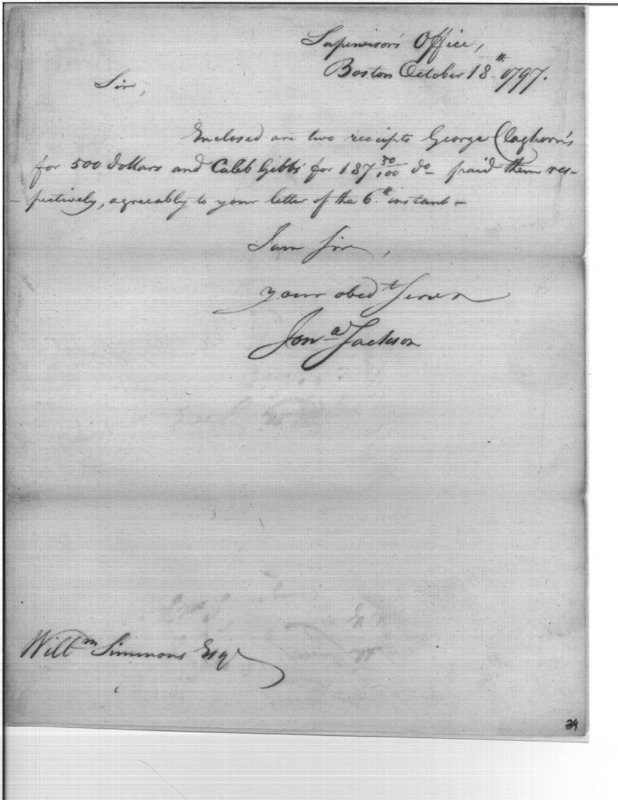 Supervisor's Office,
Boston October 18th 1797.
Sir,
Enclosed are two receipts George Claghorn's
for 500 dollars and Caleb Gibbs' for 187 50/100 do paid them res-
-pectively, agreeably to your letter of the 6th instant -
I am Sir,
your obedt Servt
Jona Jackson
Willm Simmons Esqr
34